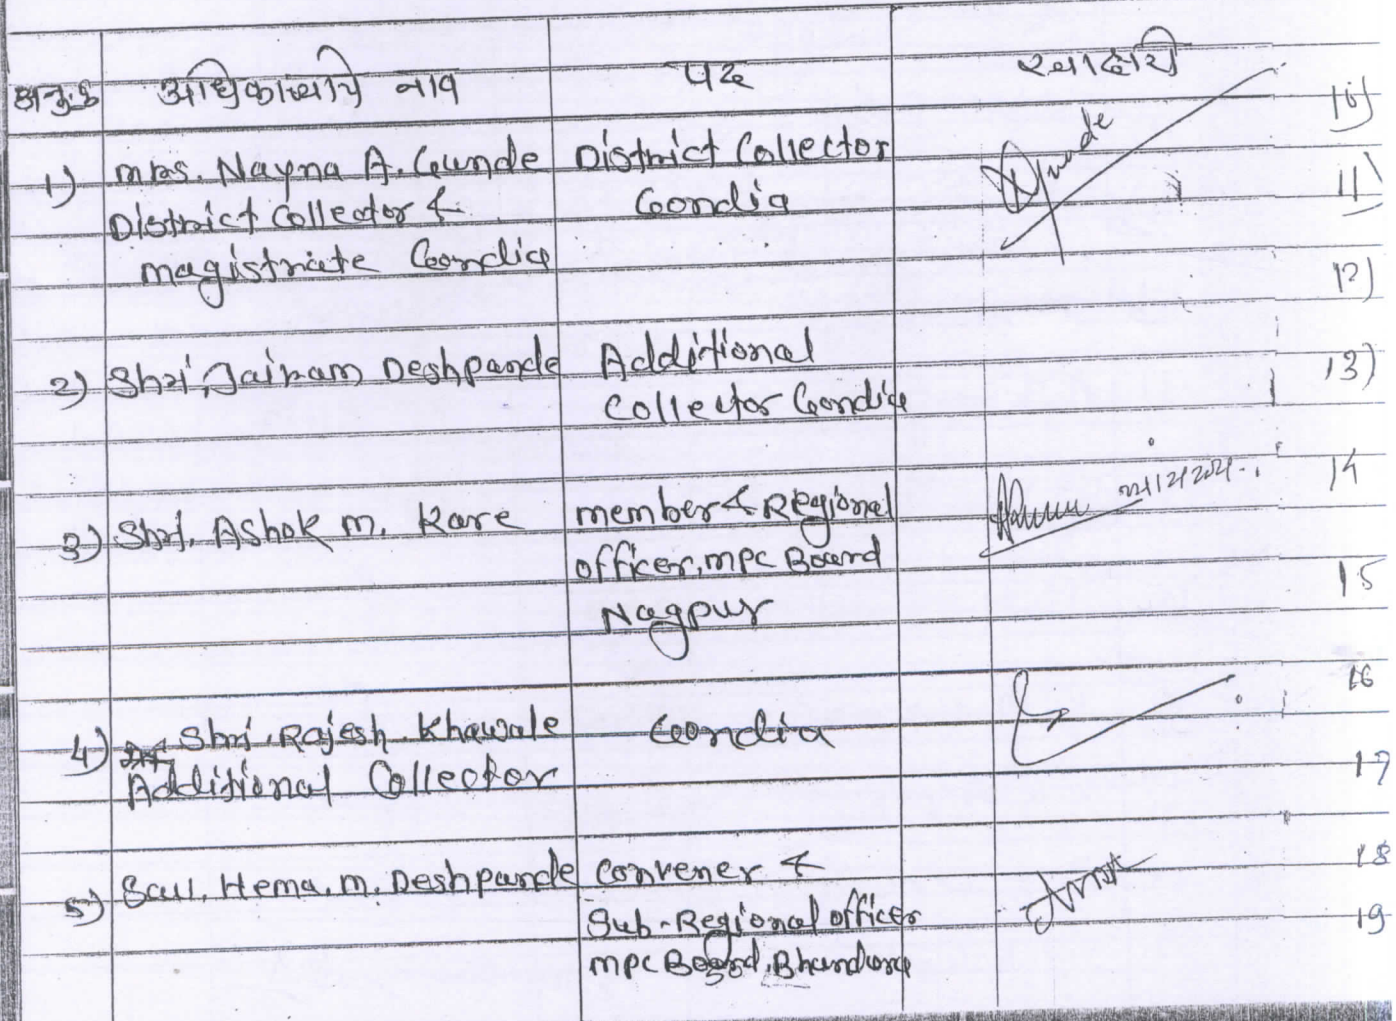 अनु.क्र अधिकाऱ्याचे नाव पद स्वाक्षरी
1) Mrs. Nayna A. Gunde District Collector
District Collector & Gondia
magistrate Gondia
2) Shri, Jairam Deshpande Additional
Collector Gondia
3) Shri. Ashok M. Kare member & Regional
officer, MPC Board
Nagpur
4) Shri. Rajesh Khawale Gondia
Additional Collector
5) Sau. Hema. M. Deshpande Convener &
Sub-Regional officer
MPC Board, Bhandara
10)
11)
12)
13)
14
15
16
17
18
19